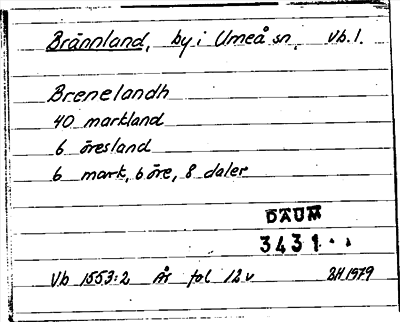 Brännland, by i Umeå sn, Vb. l.
Brenelandh
40 markland
6 öresland
6 mark, 6 öre, 8 daler
DAUM
3431
Vb 1553:2 År fol 12v BH 1979